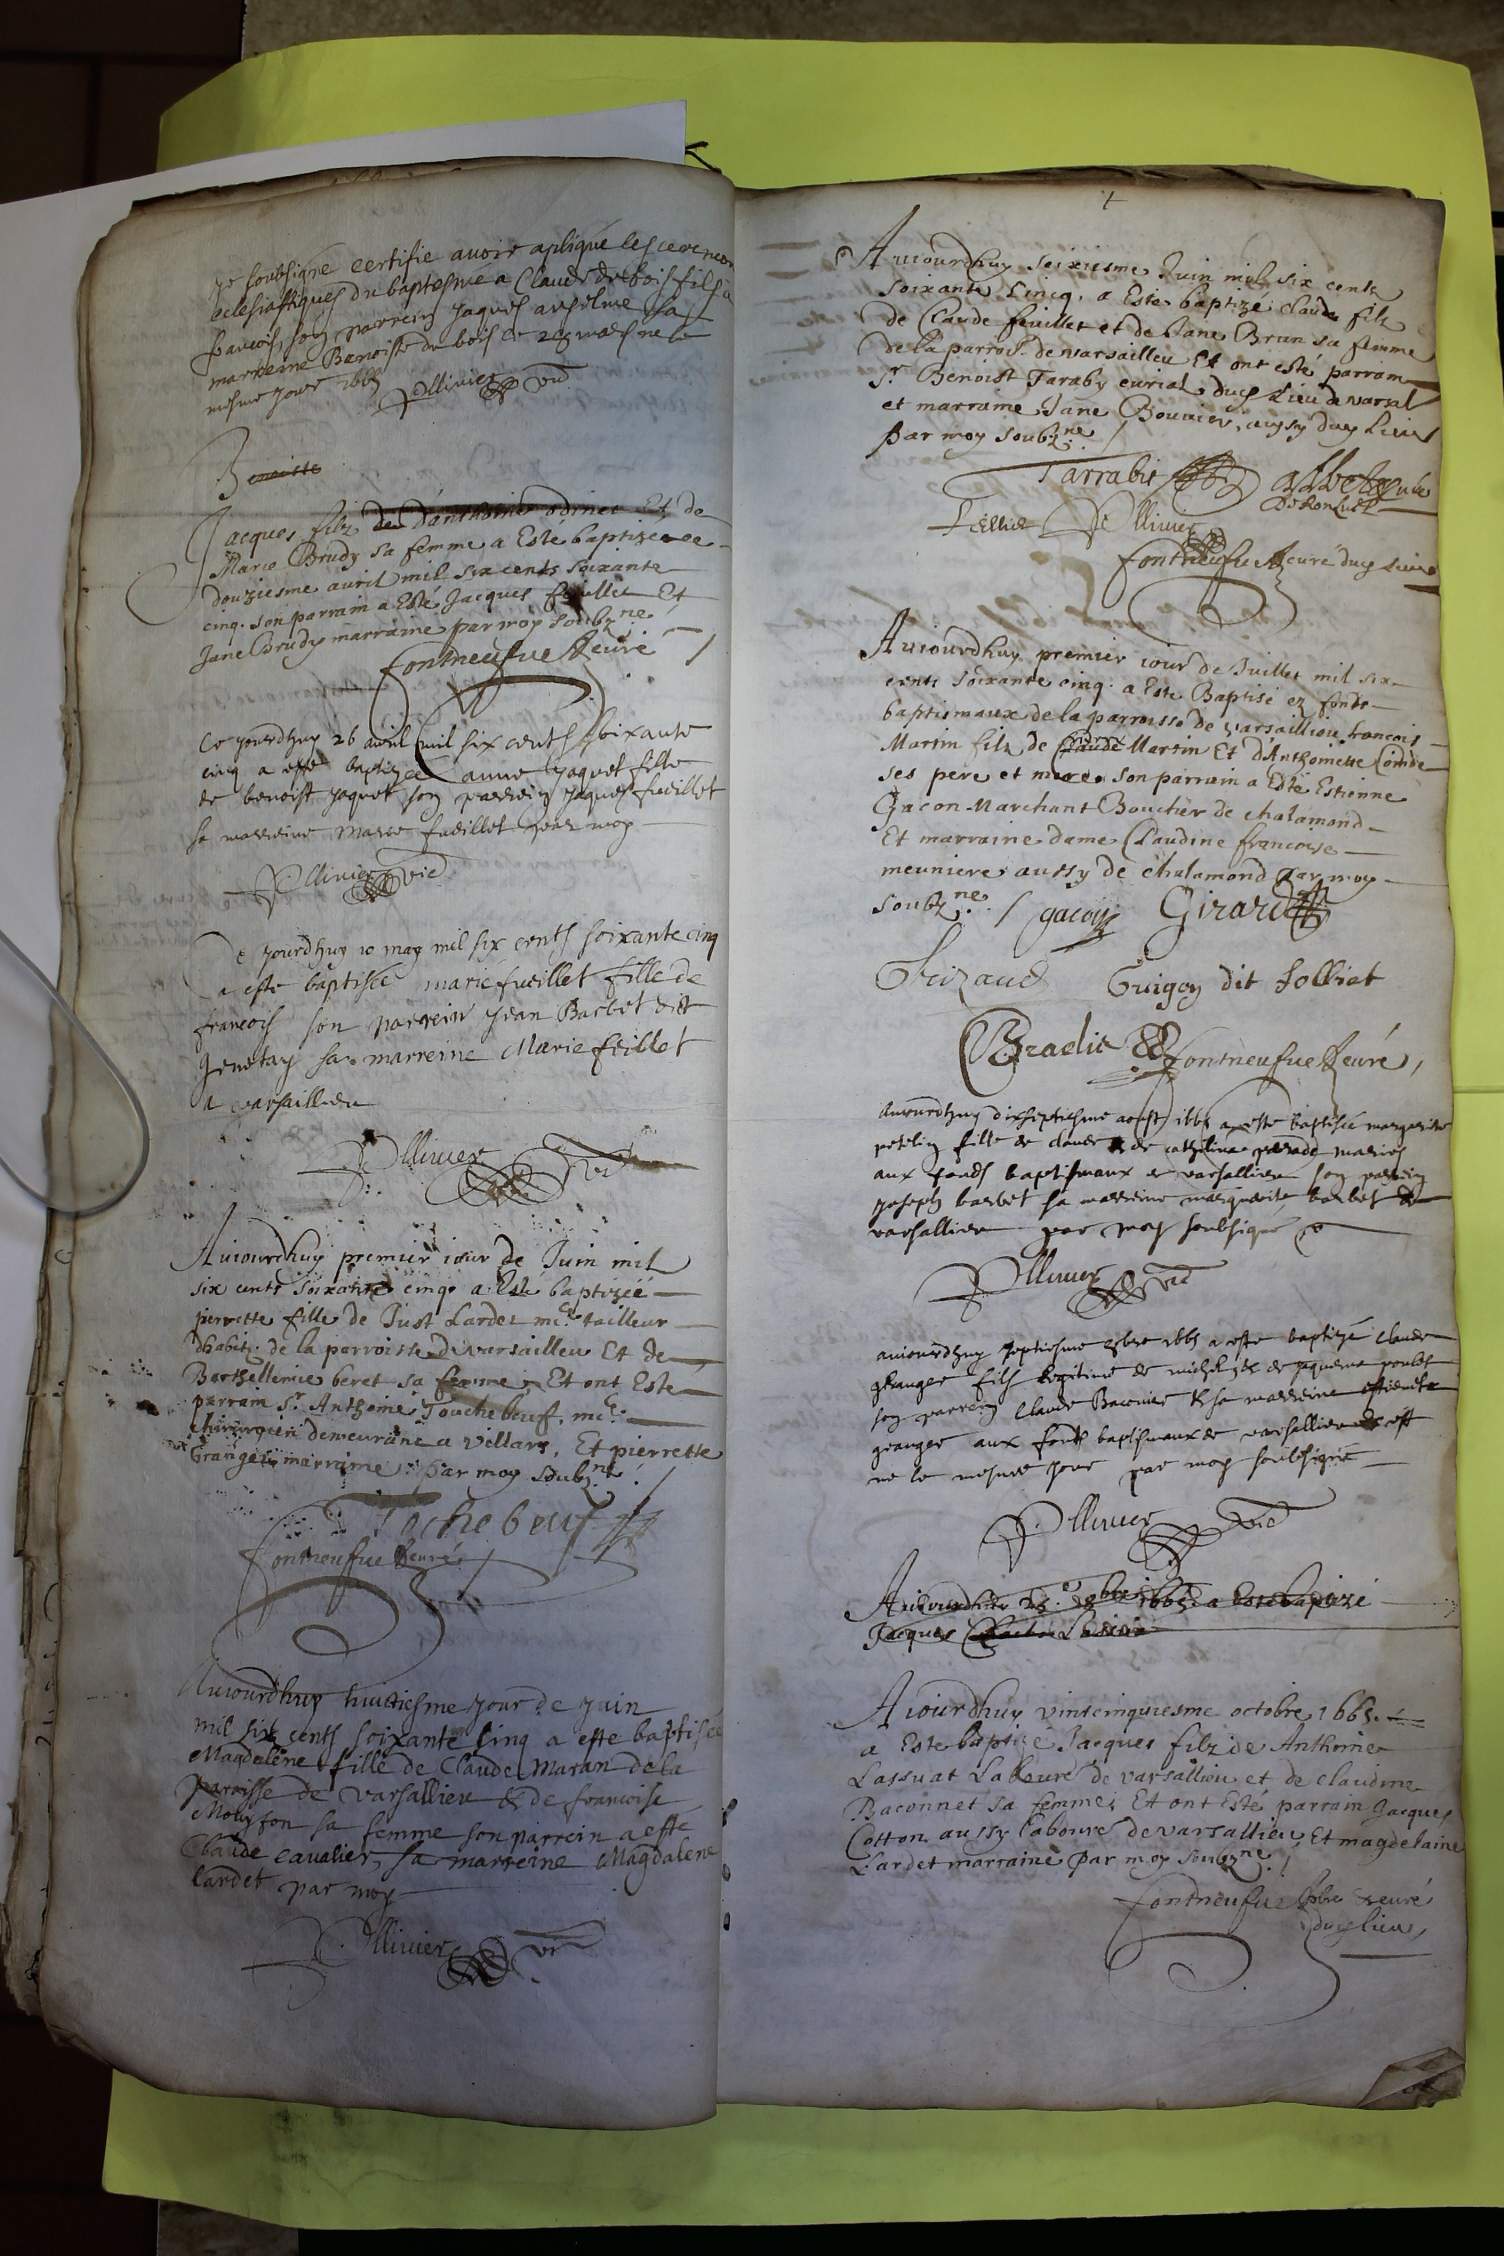 je soubsigne certifie avoir apliqué les ceremon
eclesiastiques du baptesme a Claude dubois fils a
francois, son parrein Jaques anselme sa
marreine Benoiste du bois ce 28 mars ne le
mesme jour 1665
Ollivier vic
Benoiste
Jacques filz de d'anthoine odinet Et de
Marie Brudy sa femme a Esté baptizé ce
douziesme avril mil six cents soixante
cinq. son parrain a Esté Jacques feuillet Et
Jane Brudy marraine par moy soubzne
fontneufve curé
Ce jourdhuy 26 avril mil six cents soixante
cinq a esté baptizée anne Jaquet fille
de benoist Jaquet son parrein Jaques fueillet
sa marreine Marie fueillet par moy
Ollivier vic
Ce jourdhuy 10 may mil six cents soixante cinq
a esté baptisée marie fueillet fille de
francois son parrein Jean Barbet dit
Genetay sa marreine Marie feillet
a varsaillieu
Ollivier vic
Auiourdhuy premier iour de Juin mil
six cents soixante cinq a Esté baptizée
pierrette fille de Just Lardet me. tailleur
dhabitz de la parroisse de varsaillieu Et de
Barthellemie beret sa femme, Et ont Esté
parrain Sr. Anthoine Touchebeuf, me.
chirurgien demeurant a villars, Et pierrette
Grange marraine par moy soubzne
Tochebeuf
fontneufve curé
Auiourdhuy huictiesme jour de juin
mil six cents soixante cinq a esté baptisée
Magdelene fille de Claude Maran de la
paroisse de varsallieu & de francoise
Moysson sa femme son parrein a esté
Claude cavalier, sa marreine Magdalene
Lardet par moy
Ollivier vic
Auiourdhuy seiziesme Juin mil six cents
soixante Cincq, a Esté baptizé claude filz
de Claude feuillet et de Jane Brun sa femme
de la parrois. de varsaillieu Et ont esté parrain
Sr. Benoist Taraby curial dud Lieu de varsal
et marraine Jane Bouvier, aussy dud Lieu
par moy soubzne
Tarrabit
Ollivier
fontneufve curé dud lieu
Auiourdhuy premier iour de Juillet mil six
cents soixante cinq. a Esté Baptisé ez fonds
baptismaux de la parroisse de varsaillieu francois
Martin filz de Claude Martin Et d'Anthoinette
ses pere et mere. son parrain a Esté Estienne
Gacon Marchant Bouchier de chalamond
Et marraine dame Claudine francoise
meuniere aussy de chalamond par moy
soubzne. / gacon Girard
Guigon dit Solliat
fontneufve curé,
Auiourdhuy dixseptiesme aoust 1665 a esté baptisée margarite
petelin fille de claude & de catheline mariés
aux fonds baptismaux de varsallieu son parrein
joseph barbet sa marreine marguerite barbet de
varsallieu par moy soubsigné
Ollivier vic
auiourdhuy septiesme 1665 a esté baptizé Claude
granger filz legitime de michel & de jaqueme poulet
son parrein Claude & sa marreine
granger aux fonts baptismaux de varsallieu & est
ne le mesme jour par moy soubsigné
Ollivier vic
Auiourdhuy 25e 8bre 1665 a Esté baptizé
Jacques
Aiourdhuy vintcinquiesme octobre 1665.
a Esté baptizé Jacques filz de Anthoine
Lassuat Laboure de varsallieu et de claudine
Baconnet sa femme; Et ont Esté parrain Jacques
Cotton aussy Laboure de varsallieu, Et magdelaine
Lardet marraine par moy soubzne. /
fontneufve pbre curé
dud lieu,